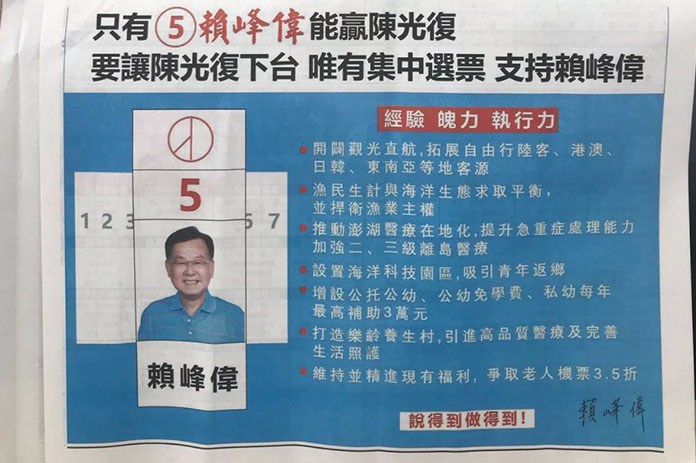 只有⑤賴峰偉能贏陳光復
要讓陳光復下台 唯有集中選票 支持賴峰偉
經驗 魄力 執行力
開闢觀光直航,拓展自由行陸客、港澳、
日韓、東南亞等地客源
漁民生計與海洋生態求取平衡,
並捍衛漁業主權
推動澎湖醫療在地化,提升急重症處理能力
加強二、三級離島醫療
設置海洋科技園區,吸引青年返鄉
增設公托公幼、公幼免學費、私幼每年
最高補助3萬元
打造樂齡養生村,引進高品質醫療及完善
生活照護
維持並精進現有福利,爭取老人機票3.5折
說得到做得到!
賴峰偉
5
1 2 3 6 7
賴峰偉